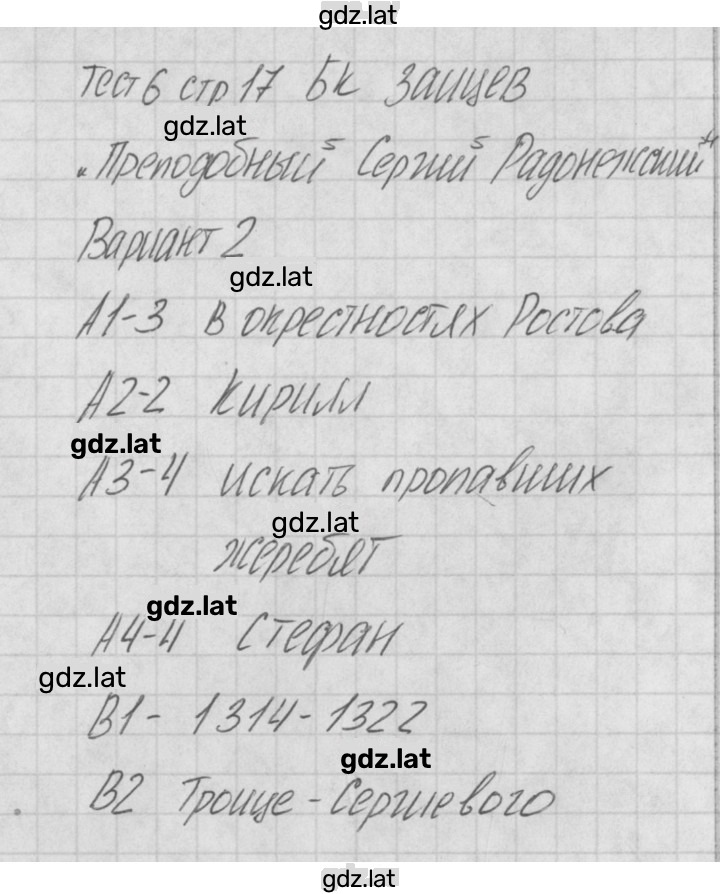 gdz.lat
Тест 6 стр 17 Бк Зайцев
gdz.lat
"Преподобный Сергий Радонежский"
Вариант 2
gdz.lat
А1-3 в окрестностях Ростова
А2-2 Кирилл
gdz.lat
А3-4 искать пропавших
gdz.lat
жеребят
gdz.lat
А4-4 Стефан
gdz.lat
В1- 1314-1322
gdz.lat
В2 Троице-Сергиевого
gdz.lat